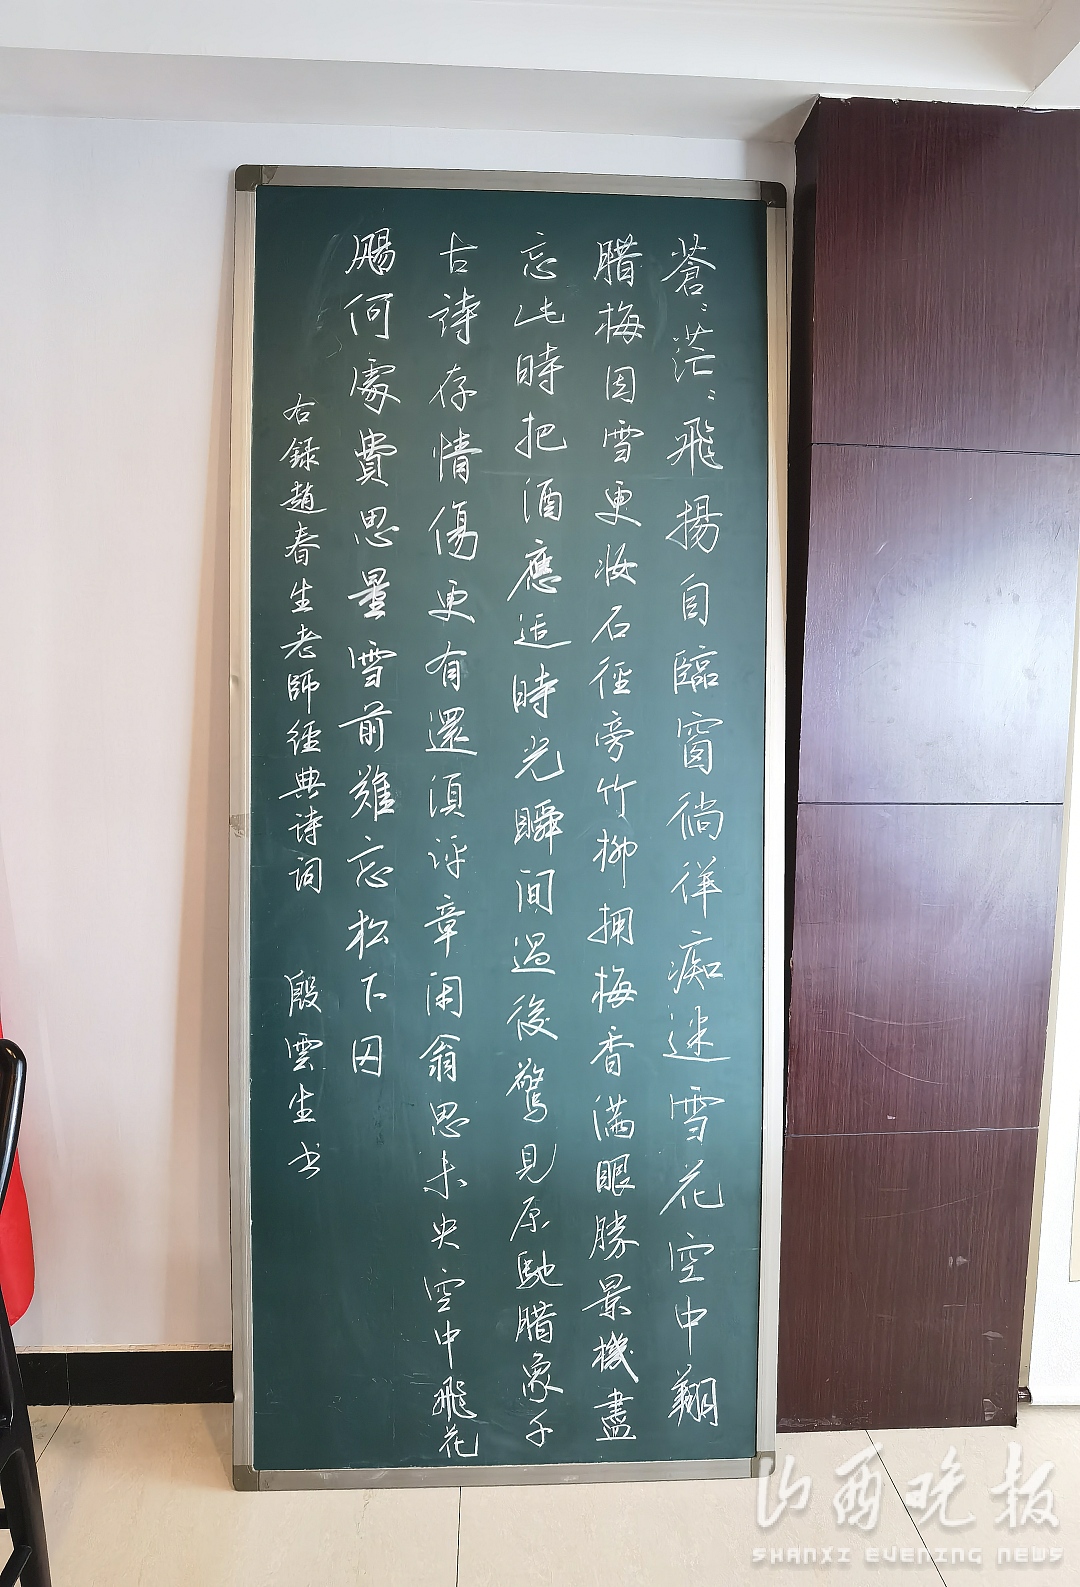 蒼〻茫〻飛揚自臨窗徜徉痴迷雪花空中翔
腊梅因雪更妝石徑旁竹柳拥梅香满眼勝景機盡
忘此時把酒應适時光瞬间過後驚見原馳腊象千
古詩存情傷更有還須评章闲翁思未央空中飛花
賜何處費思量雪前難忘松下囚
右録趙春生老師經典诗词 殷雲生书
山西晚报
SHANXI EVENING NEWS